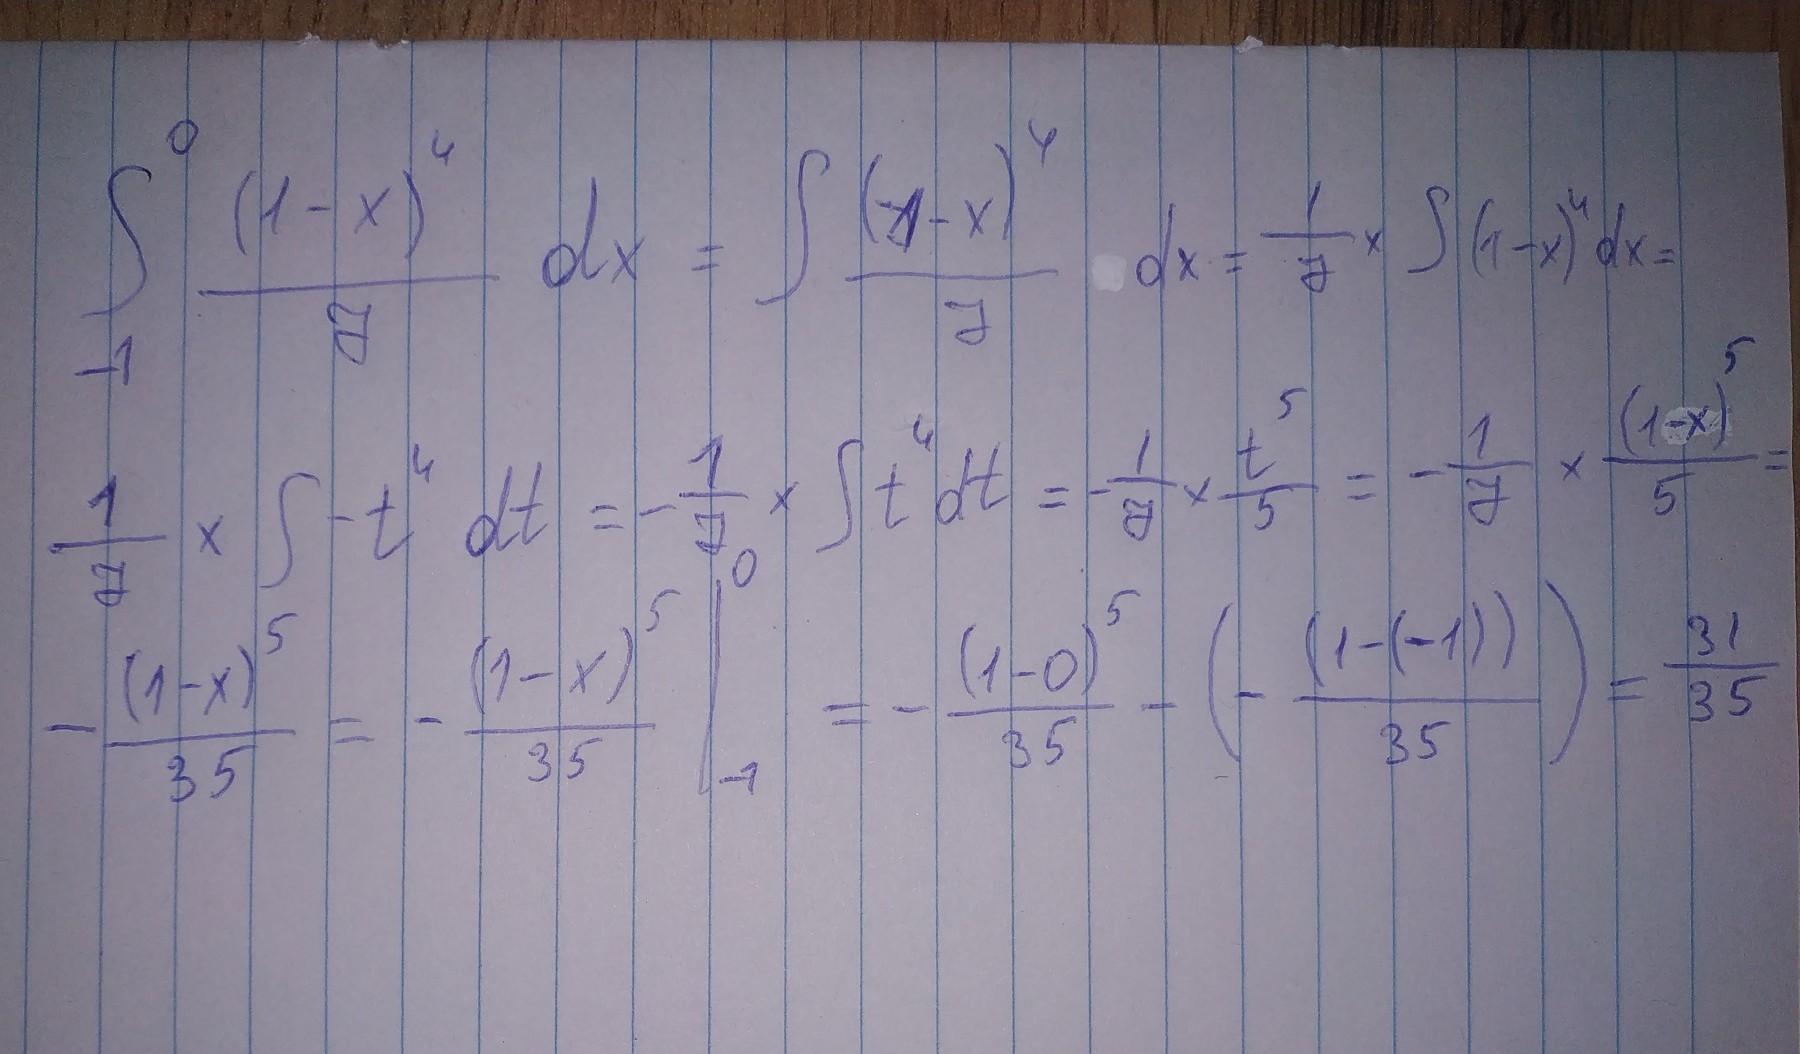 ∫_{-1}^{0} \frac{(1-x)^4}{7} dx = ∫ \frac{(1-x)^4}{7} dx = \frac{1}{7} × ∫ (1-x)^4 dx =
\frac{1}{7} × ∫ -t^4 dt = -\frac{1}{7} × ∫ t^4 dt = -\frac{1}{7} × \frac{t^5}{5} = -\frac{1}{7} × \frac{(1-x)^5}{5} =
-\frac{(1-x)^5}{35} = -\frac{(1-x)^5}{35} |_{-1}^{0} = -\frac{(1-0)^5}{35} - (-\frac{(1-(-1))}{35}) = \frac{31}{35}